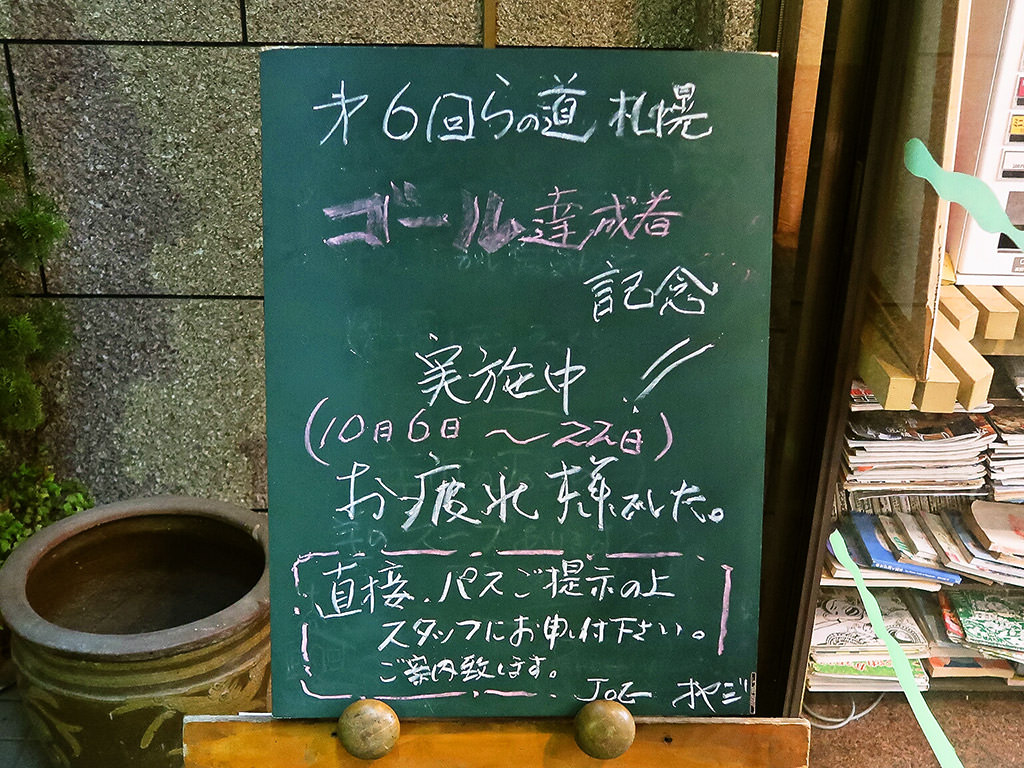 才6回らの道 札幌
ゴール達成者
記念
実施中 //
(10月6日 〜22日)
お疲れ様でした。
直接.パスご提示の上
スタッフにお申し付下さい。
ご案内致します。
JOE オヤジ